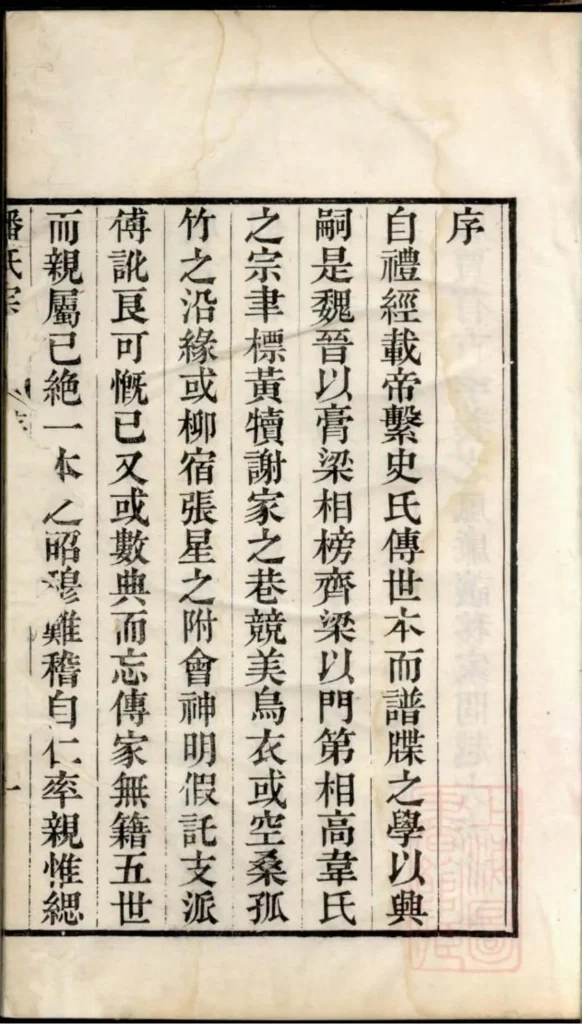 序
自禮經載帝繫史氏傳世本而譜牒之學以興
嗣是魏晉以膏梁相榜齊梁以門第相高韋氏
之宗聿標黃犢謝家之巷競美烏衣或空桑孤
竹之沿緣或柳宿張星之附會神明假託支派
傅訛良可慨已又或數典而忘傳家無籍五世
而親屬已絶一本之昭穆難稽自仁率親惟緦
潘氏宗
一